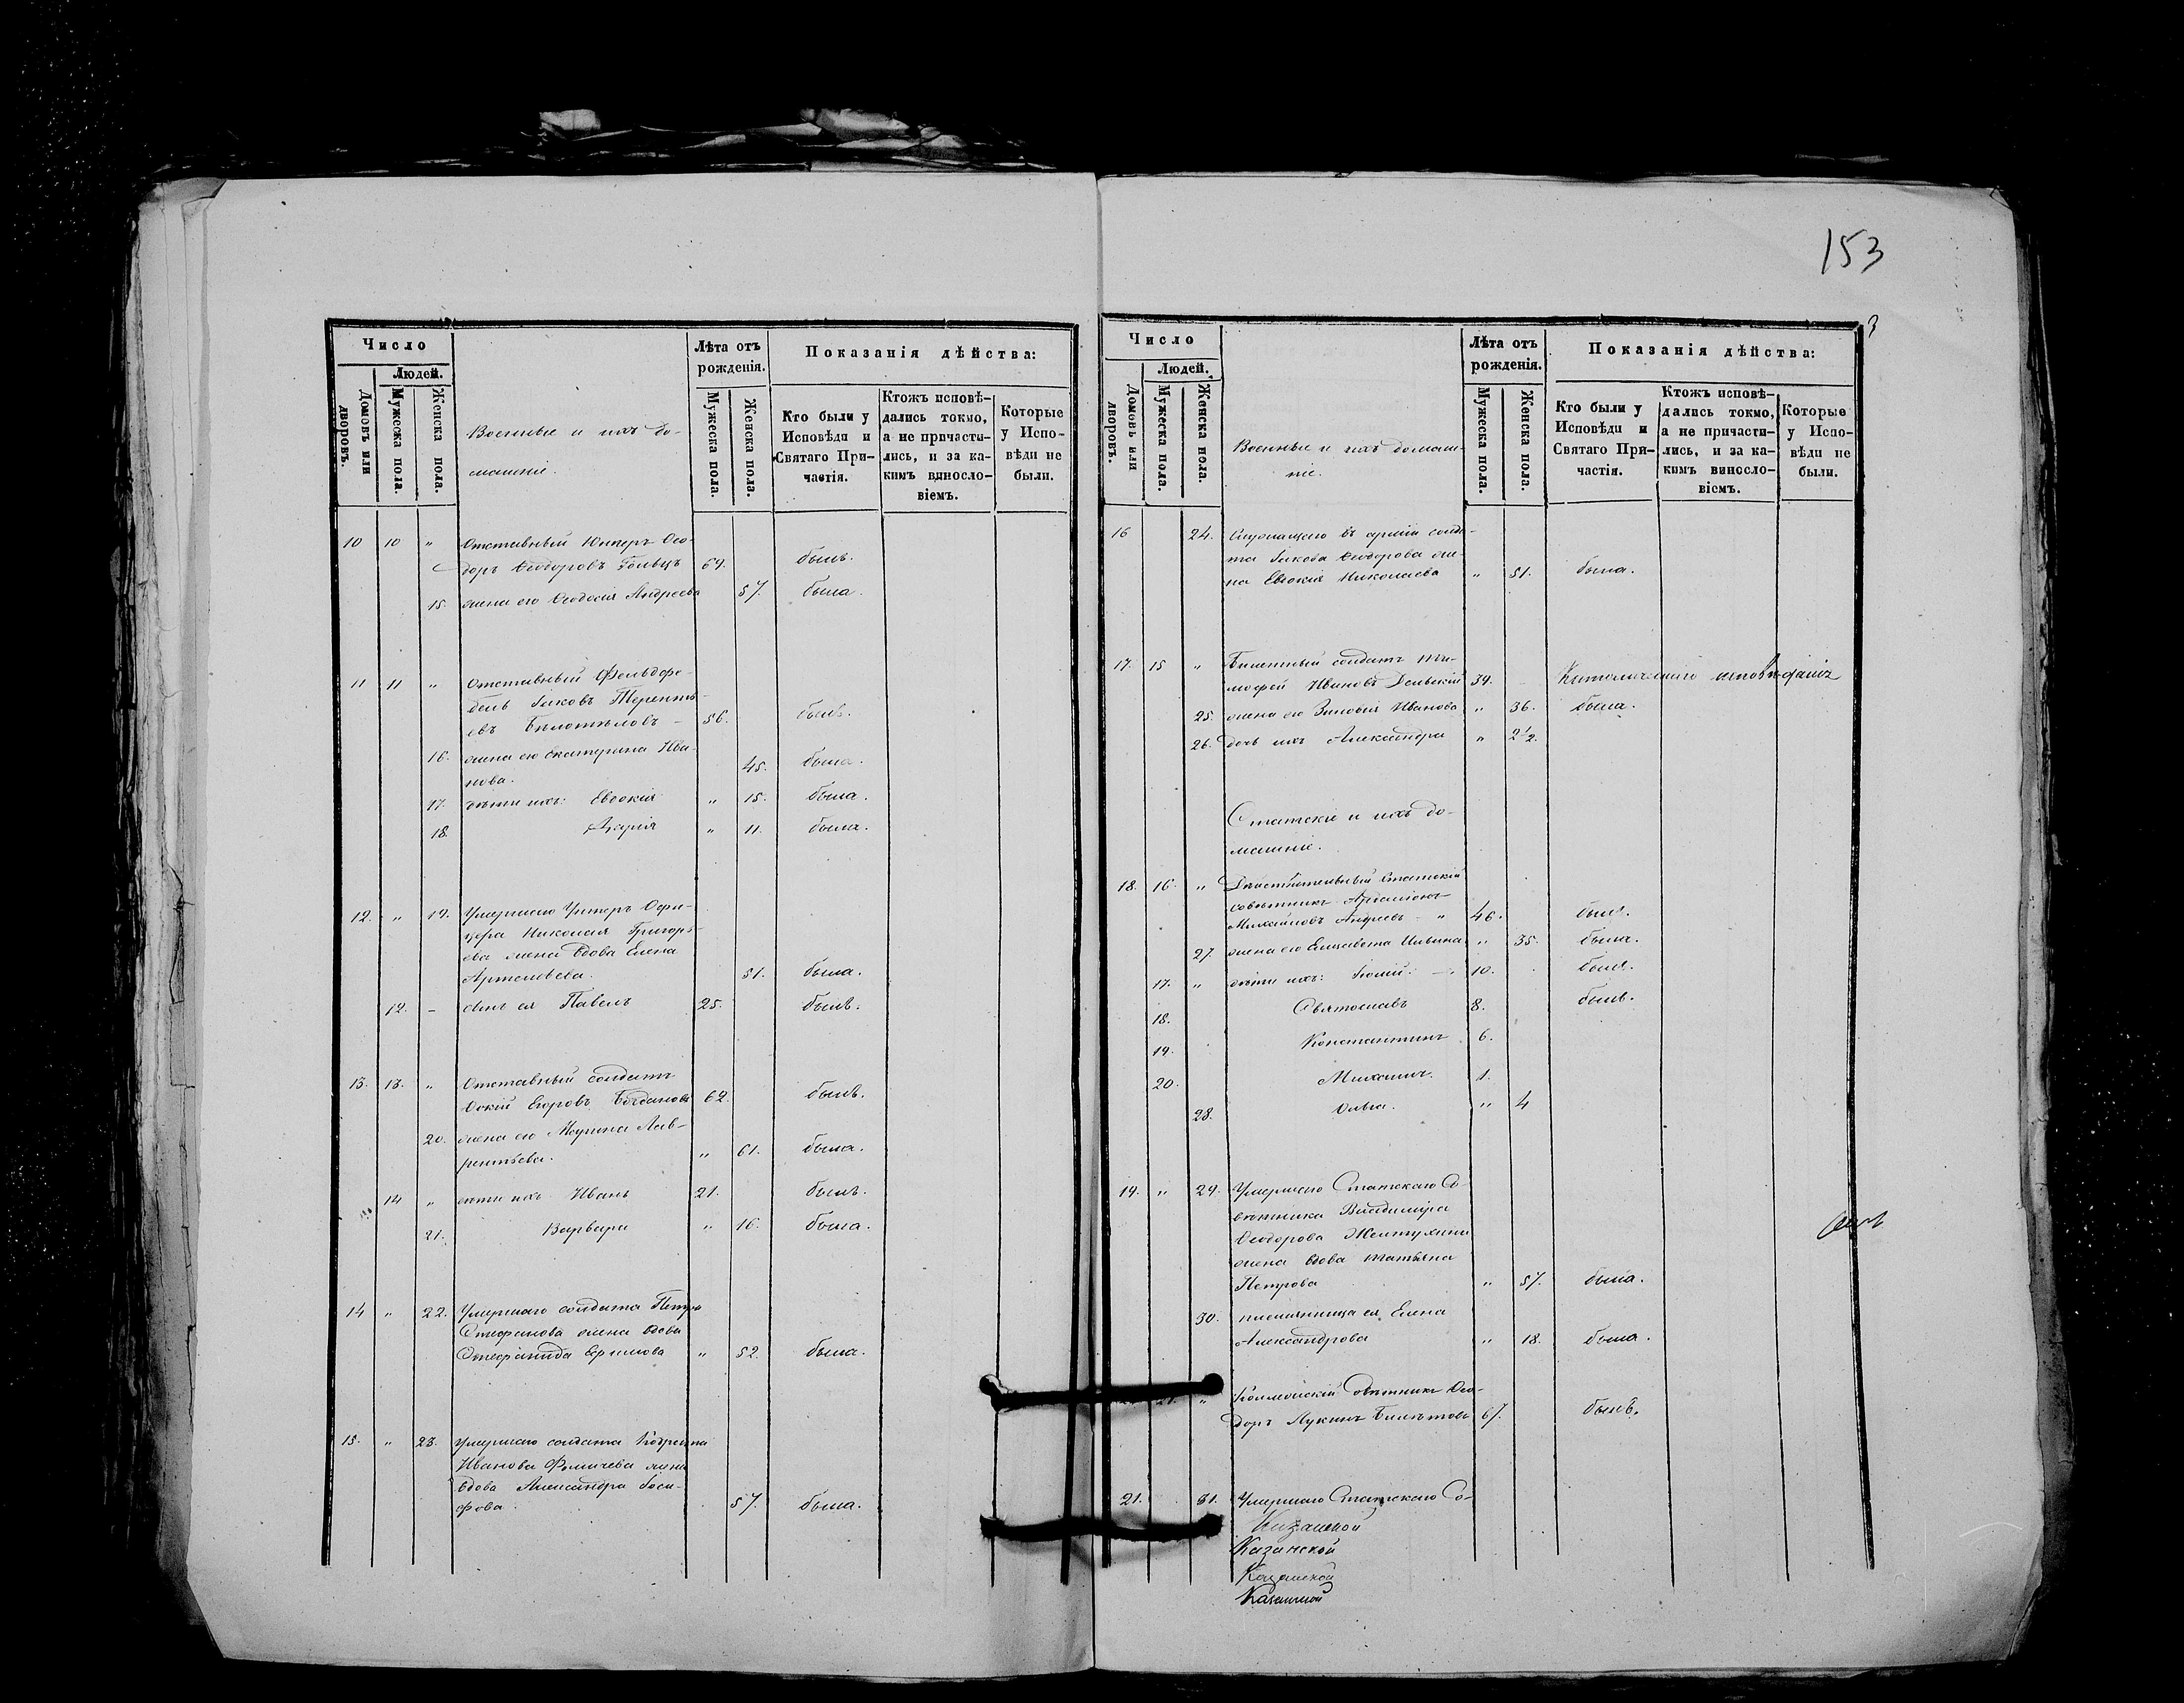 153
3
Число
Людей.
Домовъ или дворовъ.
Мужеска пола.
Женска пола.
Военные и ихъ до-
машніе.
Лѣта отъ
рожденія.
Мужеска пола.
Женска пола.
Показанія дѣйства:
Кто были у
Исповѣди и
Святаго При-
частія.
Ктожъ исповѣ-
дались токмо,
а не причасти-
лись, и за ка-
кимъ винosло-
віемъ.
Которые
у Испо-
вѣди не
были.
10 10 " Отставный Юнкеръ Ѳео-
доръ Ѳеодоровъ Гольцъ 69. былъ.
15. жена его Ѳеодосія Андреева 57. была.
11 11 " Отставный Фельдфе-
бель Іаковъ Терентъ-
евъ Бѣлотѣловъ – 56. былъ.
16. жена его Екатерина Ива-
нова. 45. была.
17. дѣти ихъ: Евдокія " 15. была.
18. Дарія " 11. была.
12. " 19. Умершаго Унтеръ Офи-
цера Николая Григорь-
ева жена вдова Елена
Артемьева. 51. была.
12. – сынъ ея Павелъ 25. былъ.
13. 13. " Отставный солдатъ
Егоровъ Богдановъ 62. былъ.
20. жена его Марина Лав-
рентьева. " 61. была.
14 " дѣти ихъ Иванъ 21. былъ.
21. Варвара " 16. была.
14 " 22. Умершаго солдата Петра
Стефанова жена вдова
Стефанида Ефимова " 52. была.
15. " 23. Умершаго солдата
Иванова Фомичева жена
вдова Александра Іоси-
фова. 57. была.
Число
Людей.
Домовъ или дворовъ.
Мужеска пола.
Женска пола.
Военные и ихъ домаш-
ніе.
Лѣта отъ
рожденія.
Мужеска пола.
Женска пола.
Показанія дѣйства:
Кто были у
Исповѣди и
Святаго При-
частія.
Ктожъ исповѣ-
дались токмо,
а не причасти-
лись, и за ка-
кимъ виносло-
віемъ.
Которые
у Испо-
вѣди не
были.
16 24. Служащаго въ арміи солда-
та Іакова Ѳеодорова же-
на Евдокія Николаева " 51. была.
17. 15 " Билетный солдатъ Ти-
мофей Ивановъ 39. Католическаго исповѣданія
25. жена его Зиновія Иванова " 36. была.
26. дочь ихъ Александра " 2½.
Статскіе и ихъ до-
машніе.
18. 16. " Дѣйствительный Статскій
совѣтникъ
Михаиловъ Андреевъ – " 46. былъ.
27. жена его Елисавета Ильина " 35. была.
17. " дѣти ихъ: Юлій. – 10. былъ.
18. Святославъ 8. былъ.
19. Константинъ 6.
20. Михаилъ. 1.
28. Ольга. " 4
19. " 29. Умершаго Статскаго Со-
вѣтника Владиміра
Ѳеодорова Желтухина
жена вдова Татьяна
Петрова " 57. была.
30. племянница ея Елена
Александрова " 18. была.
" Коллежскій Совѣтникъ Ѳео-
доръ Лукинъ 67. былъ.
21. 31. Умершаго Статскаго Со-
Казанской
Казанской
Казанской
Казанской